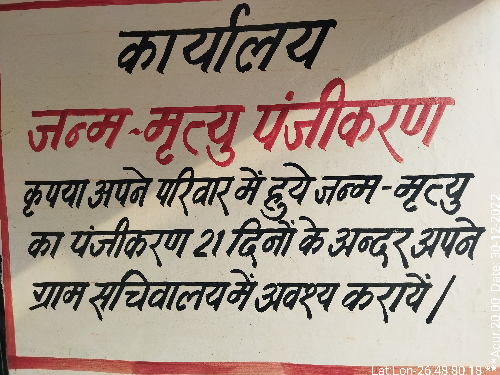 कार्यालय
जन्म-मृत्यु पंजीकरण
कृपया अपने परिवार में हुये जन्म-मृत्यु
का पंजीकरण 21 दिनों के अन्दर अपने
ग्राम सचिवालय में अवश्य करायें।
Lat Lon-26.48,80.19